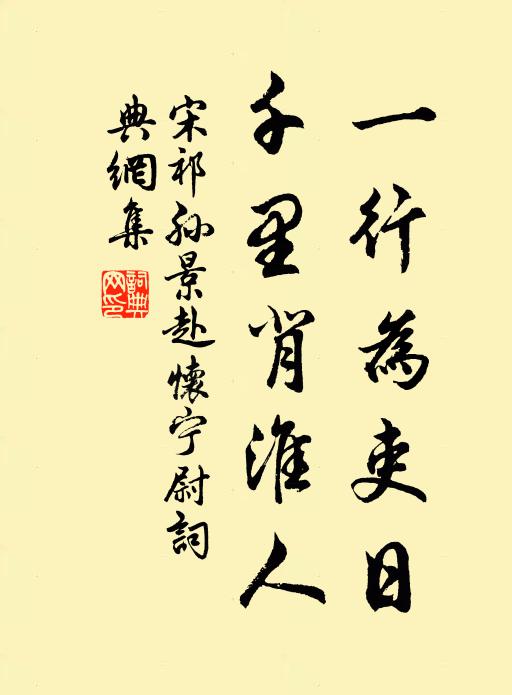 一行為吏日
千里背淮人
宋祁孫景赴懷宁尉詞
典網集
詞典網印